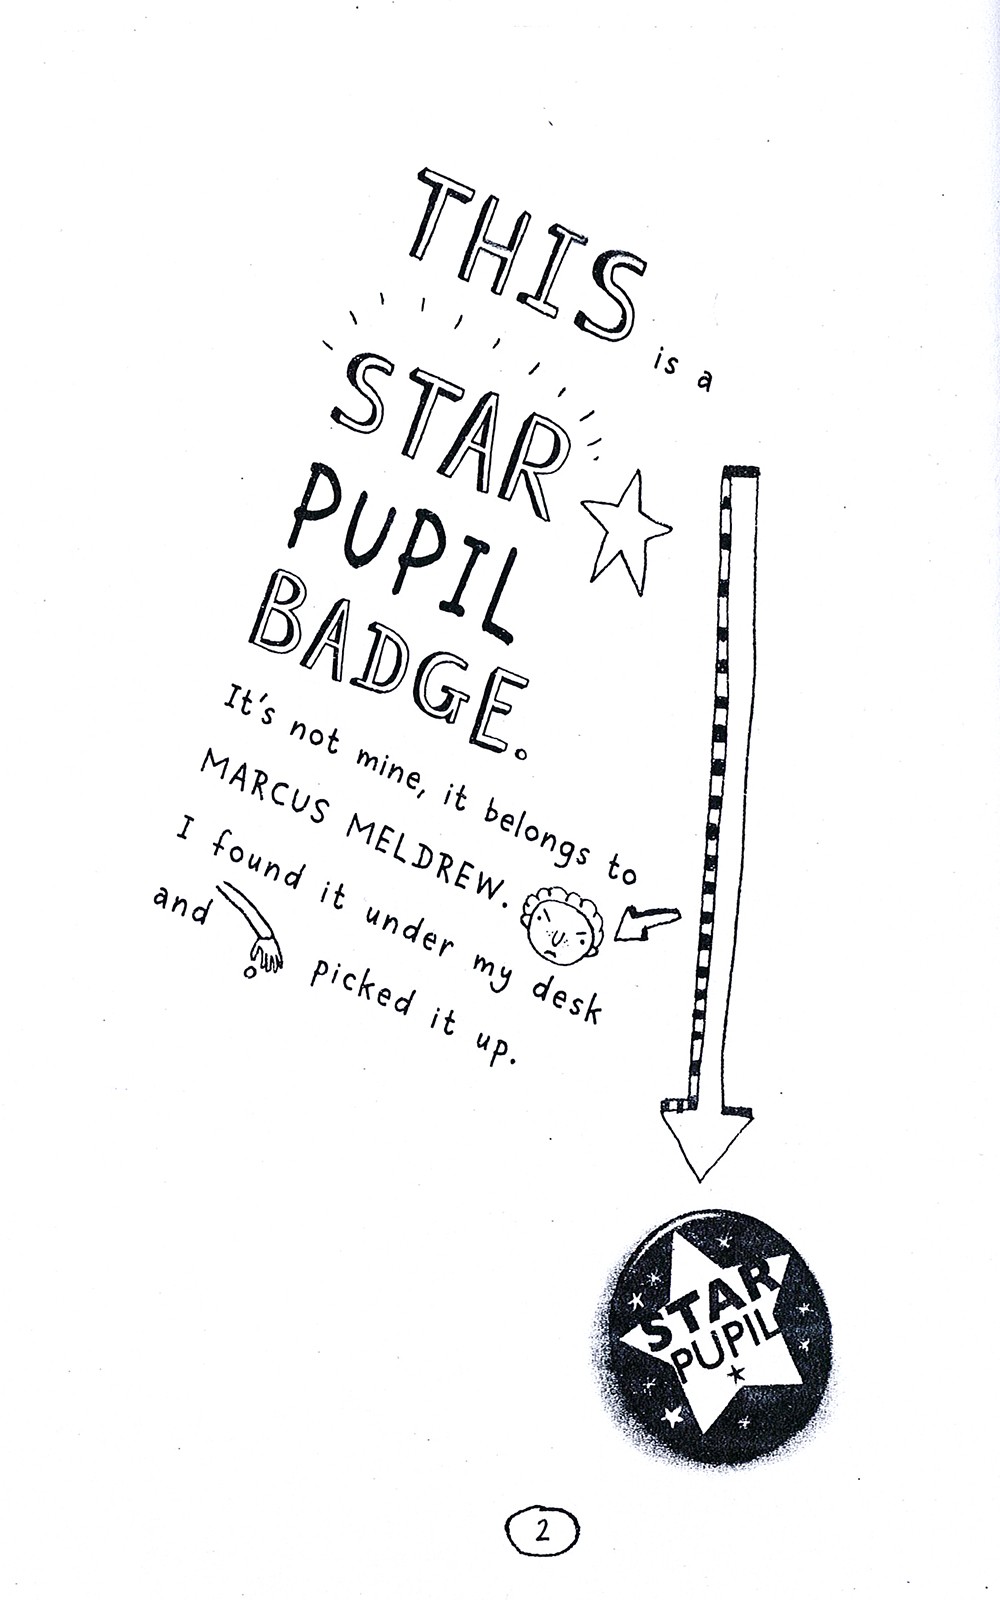 THIS
is a
STAR
PUPIL
BADGE.
It's not mine, it belongs to
MARCUS MELDREW.
I found it under my desk
and picked it up.
STAR
PUPIL
2